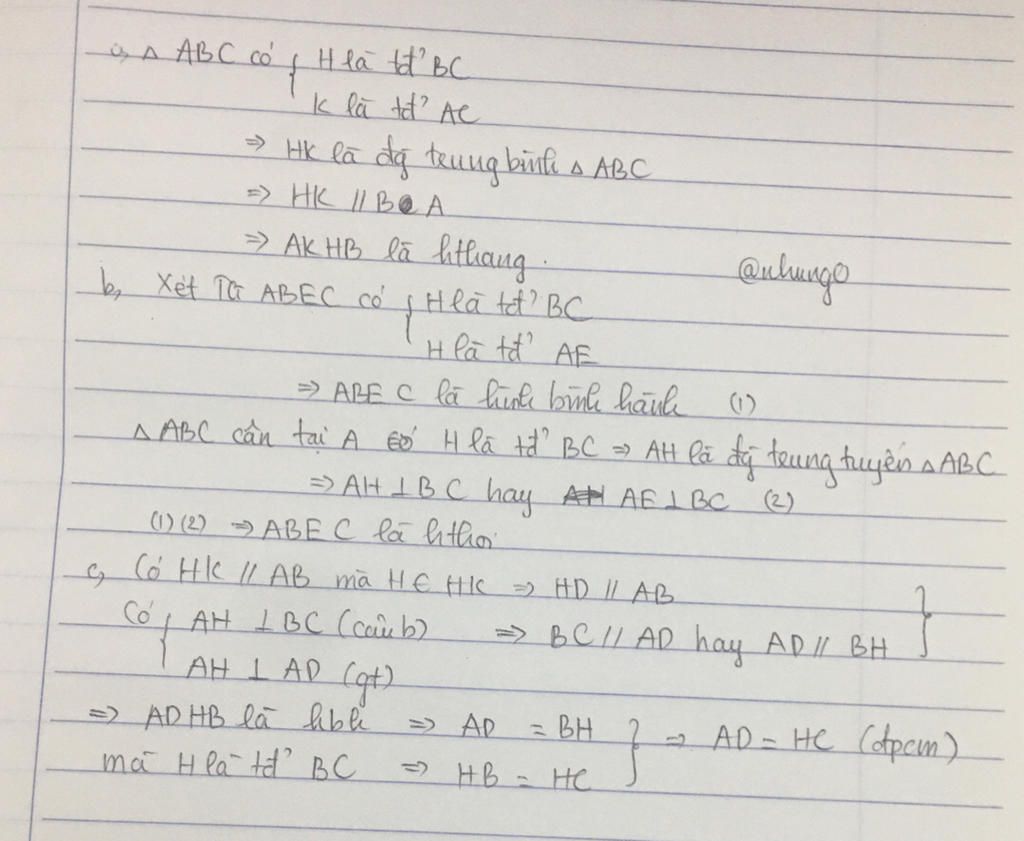 a, △ ABC có { H là tđ' BC
K là tđ' AC
⇒ HK là đg trung bình △ ABC
⇒ HK // B A
⇒ AKHB là hthang.
@nhung0
b, Xét Tứ ABEC có { H là tđ' BC
H là tđ' AE
⇒ ABEC là hình bình hành (1)
△ ABC cân tại A có H là tđ' BC ⇒ AH là đg trung tuyến △ ABC
⇒ AH ⊥ BC hay AE ⊥ BC (2)
(1)(2) ⇒ ABEC là hthoi
c, Có HK // AB mà H ∈ HK ⇒ HD // AB }
Có { AH ⊥ BC (câu b) ⇒ BC // AD hay AD // BH
AH ⊥ AD (gt)
⇒ ADHB là hbh ⇒ AD = BH } ⇒ AD = HC (đpcm)
mà H là tđ' BC ⇒ HB = HC